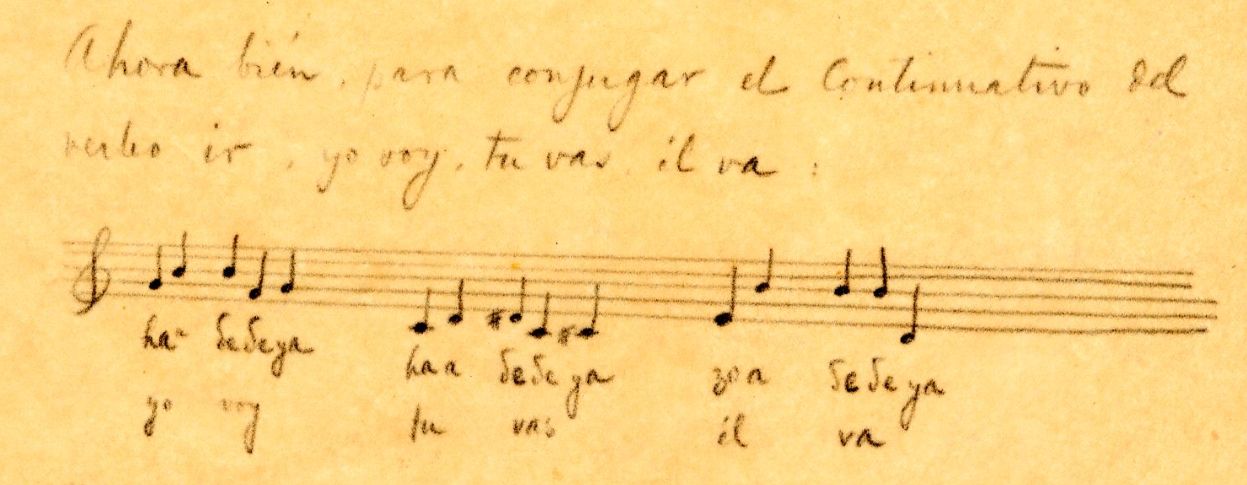 Ahora bién, para conjugar el Continuativo del
verbo ir, yo voy, tu vas, él va :
haa dedeya haa dedeya zoa dedeya
yo voy tu vas él va